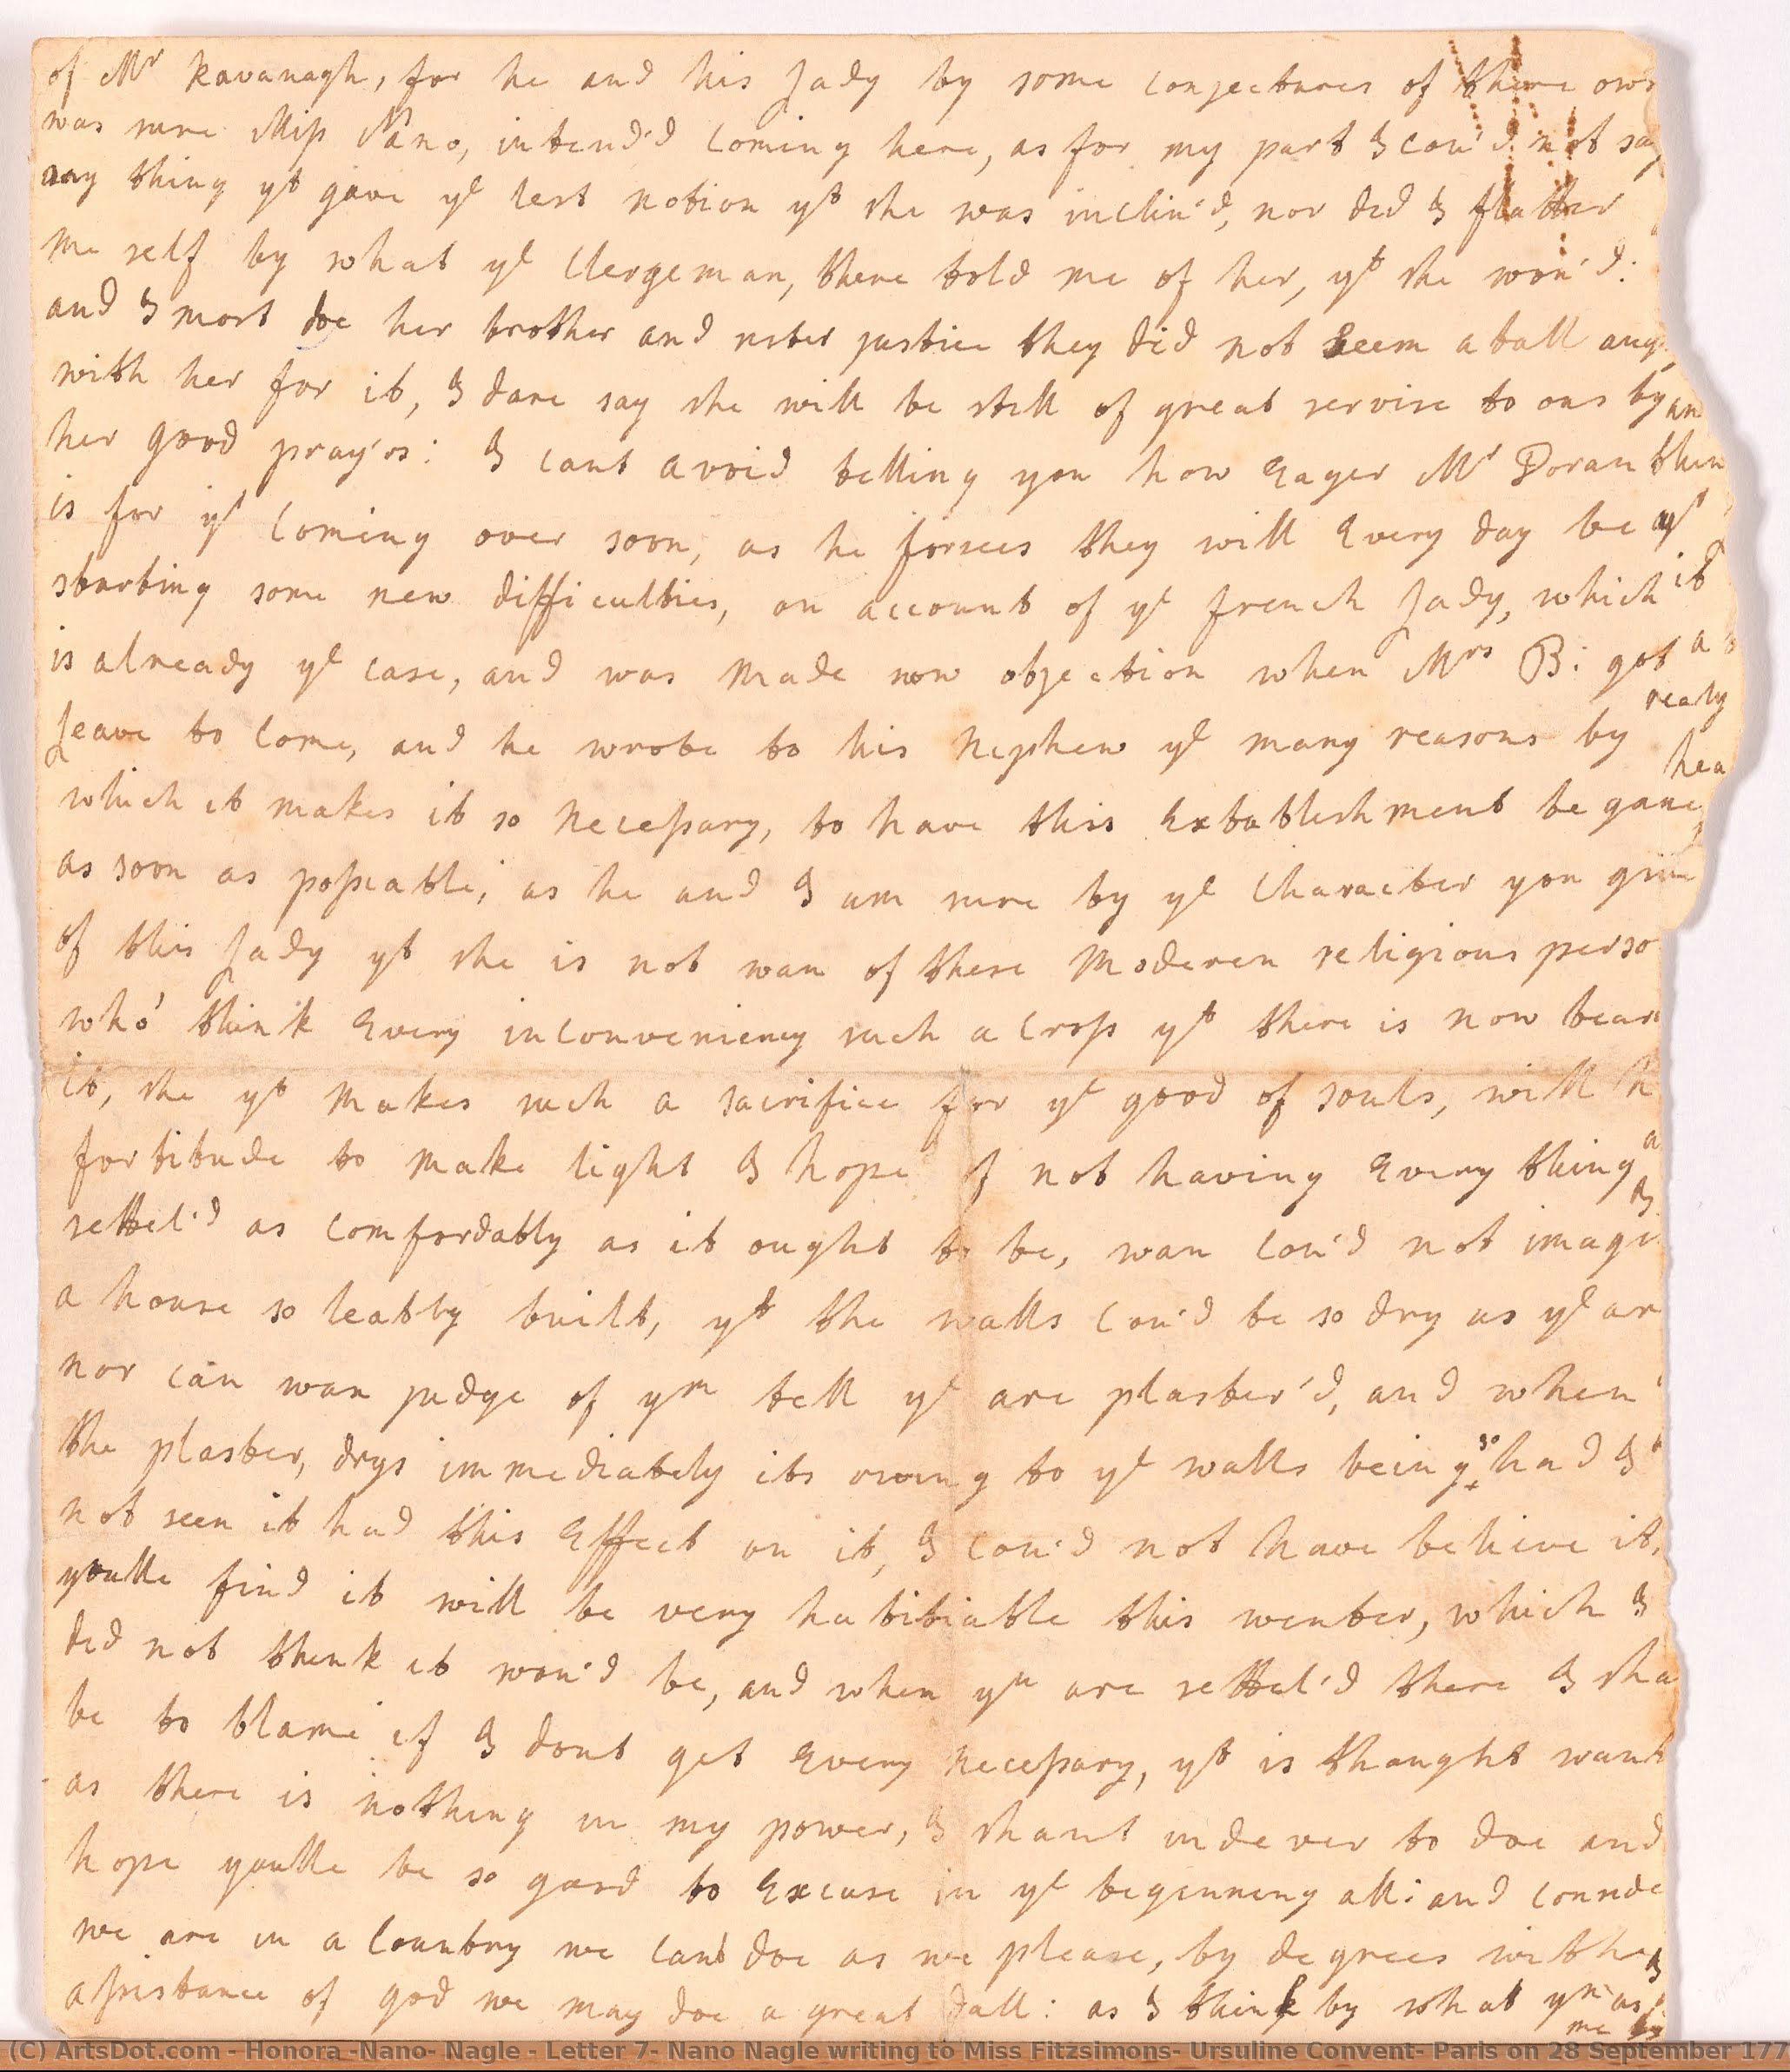 of Mr Kavanagh, for he and his Lady by some conjectures of there own
was sure Miss Nano, intend'd coming here, as for my part I cou'd not say
any thing yt gave ye lest notion yt she was inclin'd, nor did I flatter
me self by what ye Clergeman, there told me of her, yt she wou'd:
and I most doe her brother and sister justice they did not seem atall ang
with her for it, I dare say she will be still of great servise to ous by
her good pray'rs: I cant avoid telling you how Eager Mr Doran
is for yr coming over soon, as he forsees they will Every day be
starting some new difficulties, on account of ye french Lady, which
is already ye case, and was made now objection when Mrs B: got
Leave to come, and he wrote to his Nephew ye many reasons by
which it makes it so Necessary, to have this Establishment began
as soon as posseable, as he and I am sure by ye Character you give
of this Lady yt she is not wan of these Moderen religious perso
who' think Every inconveniency such a Cross yt there is now bear
it, she yt makes such a sacrifice for ye good of souls, will h
fortitude to make light I hope of not having Every thing
settel'd as comfordably as it ought to be, wan cou'd not imagi
a house so leatly built, yt the walls cou'd be so dry as ye ar
nor can wan judge of ym tell ye are plaster'd, and when
the plaster, drys immediately its owing to ye walls being so had I
not seen it had this Effect on it, I cou'd not have belieive it,
youlle find it will be very habitiable this wenter, which I
did not think it wou'd be, and when yu are settel'd there I sha
be to blame if I dont get Every Necessary, yt is thought want
as there is nothing in my power, I shant indever to doe and
hope youlle be so good to Excuse in ye beginneng all: and conside
we are in a Country we cant doe as we please, by degrees with
assistance of god we may doe a great dall: as I think by what
(C) ArtsDot.com - Honora -Nano- Nagle - Letter 7- Nano Nagle writing to Miss Fitzsimons- Ursuline Convent- Paris on 28 September 177